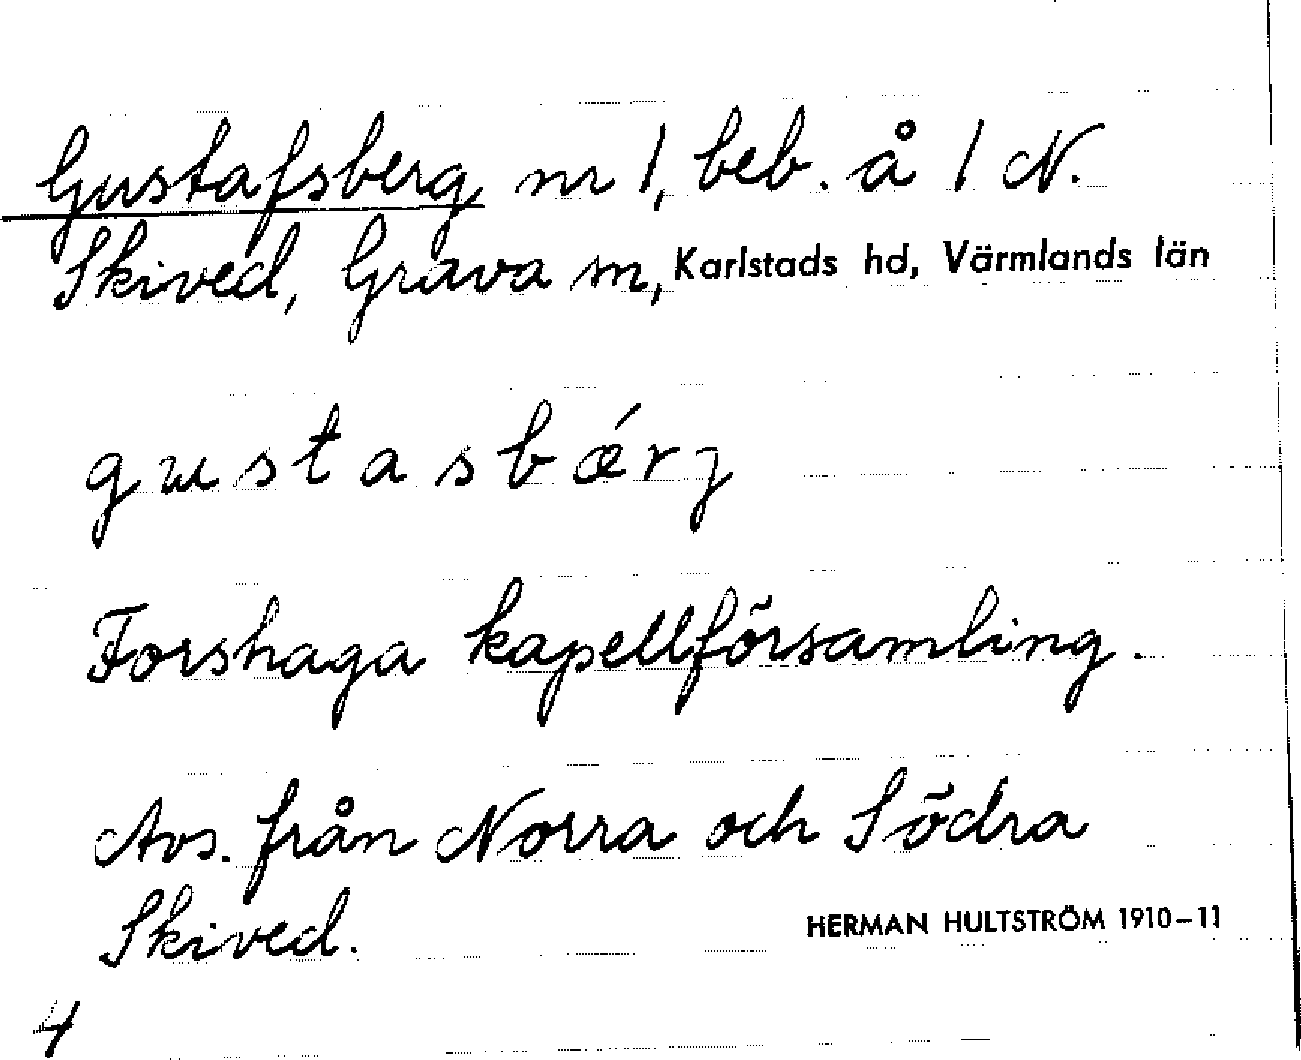 Gustafsberg nr 1, beb. å 1 N.
Skived, Grava sn, Karlstads hd, Värmlands län
gustasbǽrȷ
Forshaga kapellförsamling.
Avs. från Norra och Södra
Skived.
HERMAN HULTSTRÖM 1910–11
4